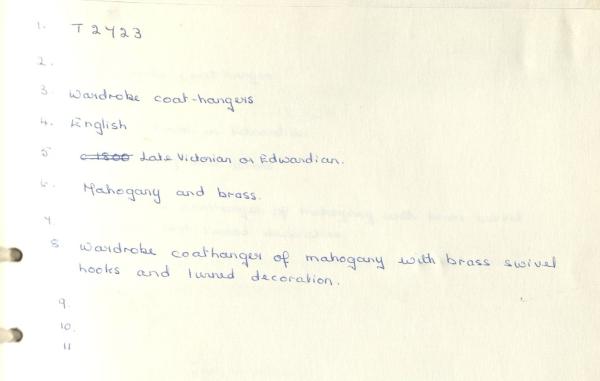 1. T 2423
2.
3. Wardrobe coat-hangers
4. English
5 c 1800 Late Victorian or Edwardian.
6. Mahogany and brass.
7.
8 Wardrobe coathanger of mahogany with brass swivel
hooks and turned decoration.
9.
10.
11